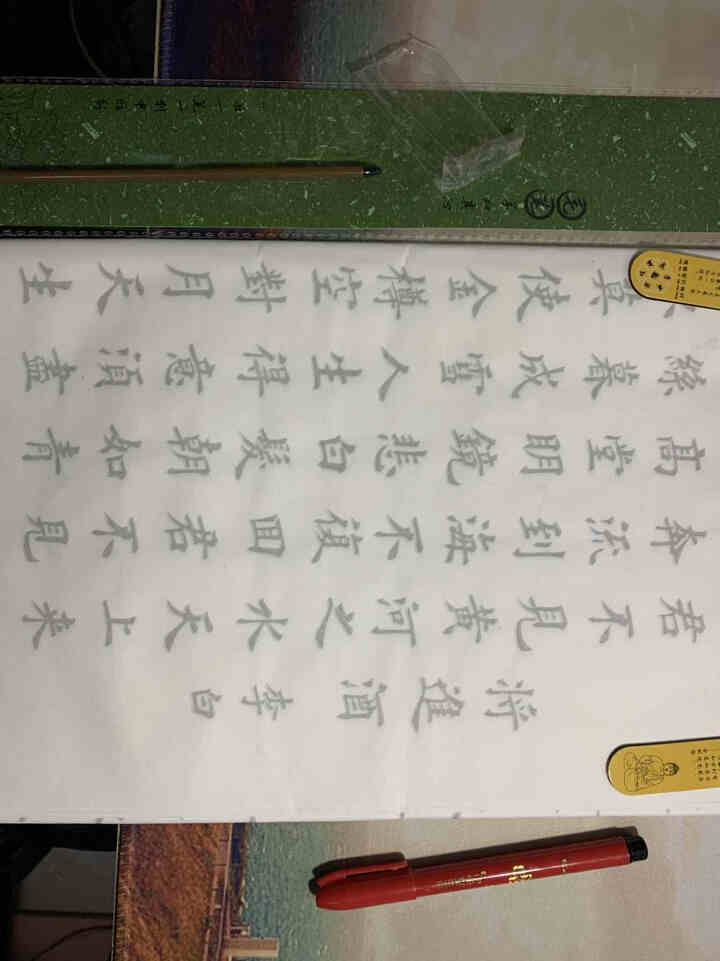 將進酒 李白
君不見黃河之水天上来
奔流到海不復回君不見
高堂明鏡悲白髮朝如青
絲暮成雪人生得意須盡
莫使金樽空對月天生